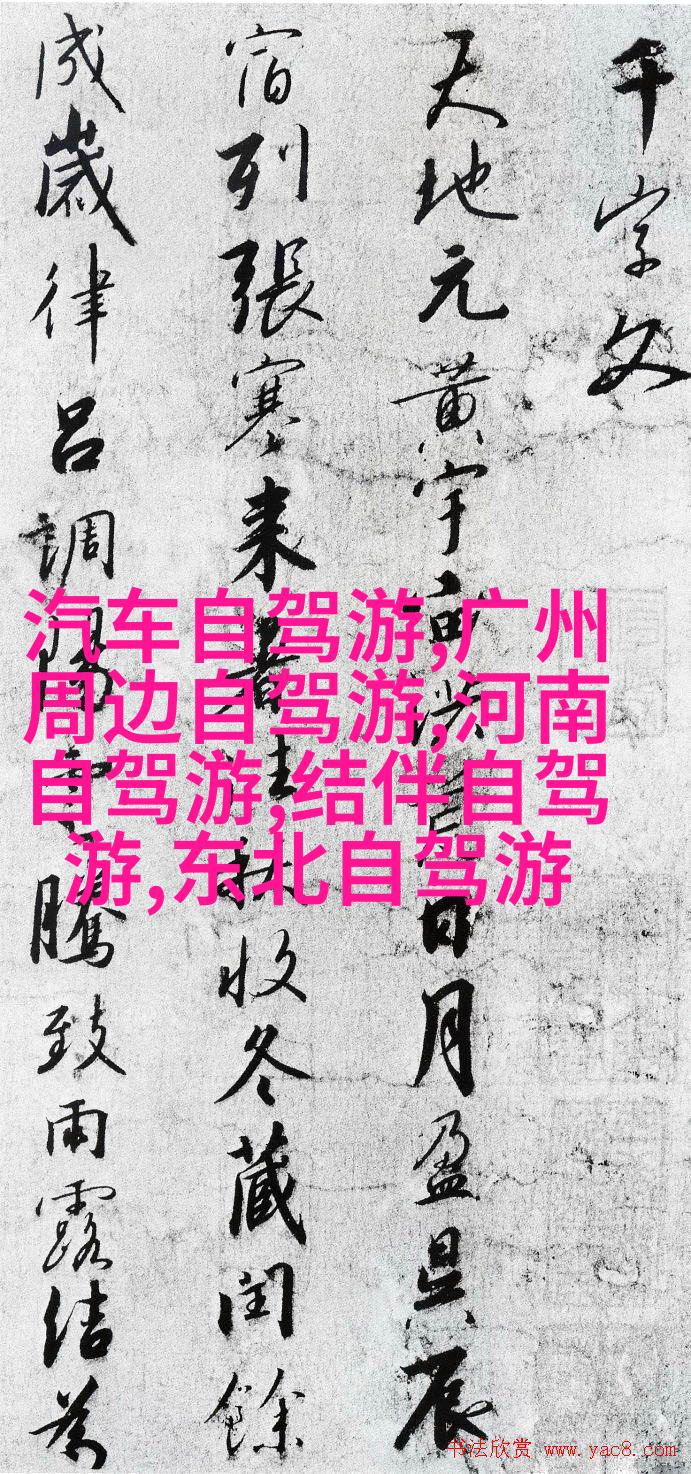 千字文
天地元黄宇宙洪荒日月盈昃辰
宿列張寒来暑往秋收冬藏閏餘
成歲律呂調陽雲騰致雨露結为
汽车自驾游,广州
周边自驾游,河南
自驾游,结伴自驾
游,东北自驾游
书法欣赏 www.yac8.com